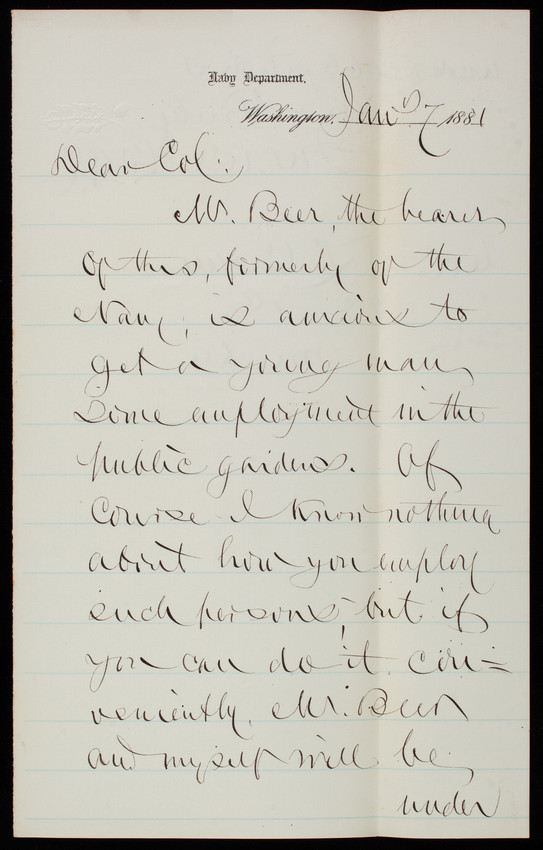 Navy Department,
Washington, Jany 7 1881
Dear Col:
Mr. Beer, the bearer
of this, formerly of the
Navy, is anxious to
get a young man
some employment in the
public gardens. Of
course I know nothing
about how you employ
such persons, but if
you can do it con=
veniently, Mr. Beer
and myself will be
under